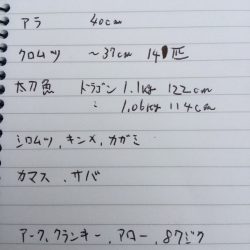 アラ 40cm
クロムツ ~37cm 14匹
太刀魚 ドラゴン 1.1kg 122cm
〃 1.06kg 114cm
シロムツ、キンメ、カガミ
カマス、サバ
アーク、クランキー、アロー、8フジク